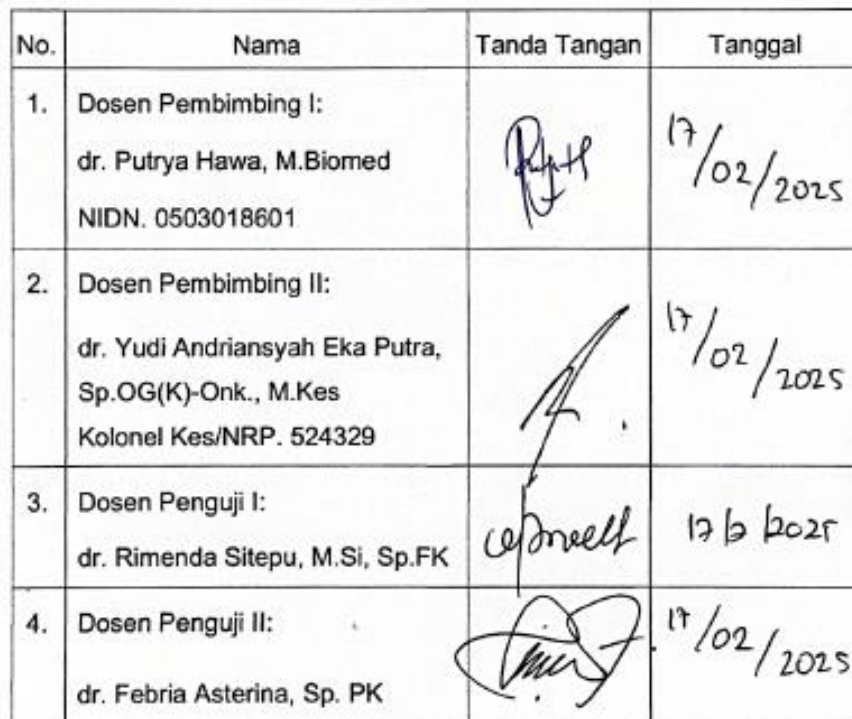 No. Nama Tanda Tangan Tanggal
1. Dosen Pembimbing I:
dr. Putrya Hawa, M.Biomed
NIDN. 0503018601
17/02/2025
2. Dosen Pembimbing II:
dr. Yudi Andriansyah Eka Putra,
Sp.OG(K)-Onk., M.Kes
Kolonel Kes/NRP. 524329
17/02/2025
3. Dosen Penguji I:
dr. Rimenda Sitepu, M.Si, Sp.FK
17/2/2025
4. Dosen Penguji II:
dr. Febria Asterina, Sp. PK
17/02/2025